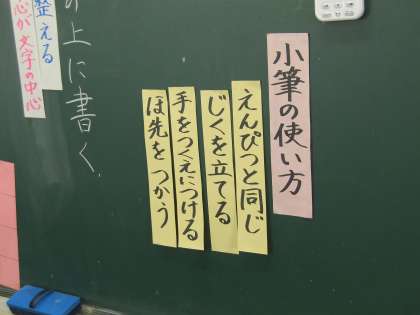 小筆の使い方
えんぴつと同じ
じくを立てる
手をつくえにつける
ほ先をつかう
の上に書く
整える
心が文字の中心